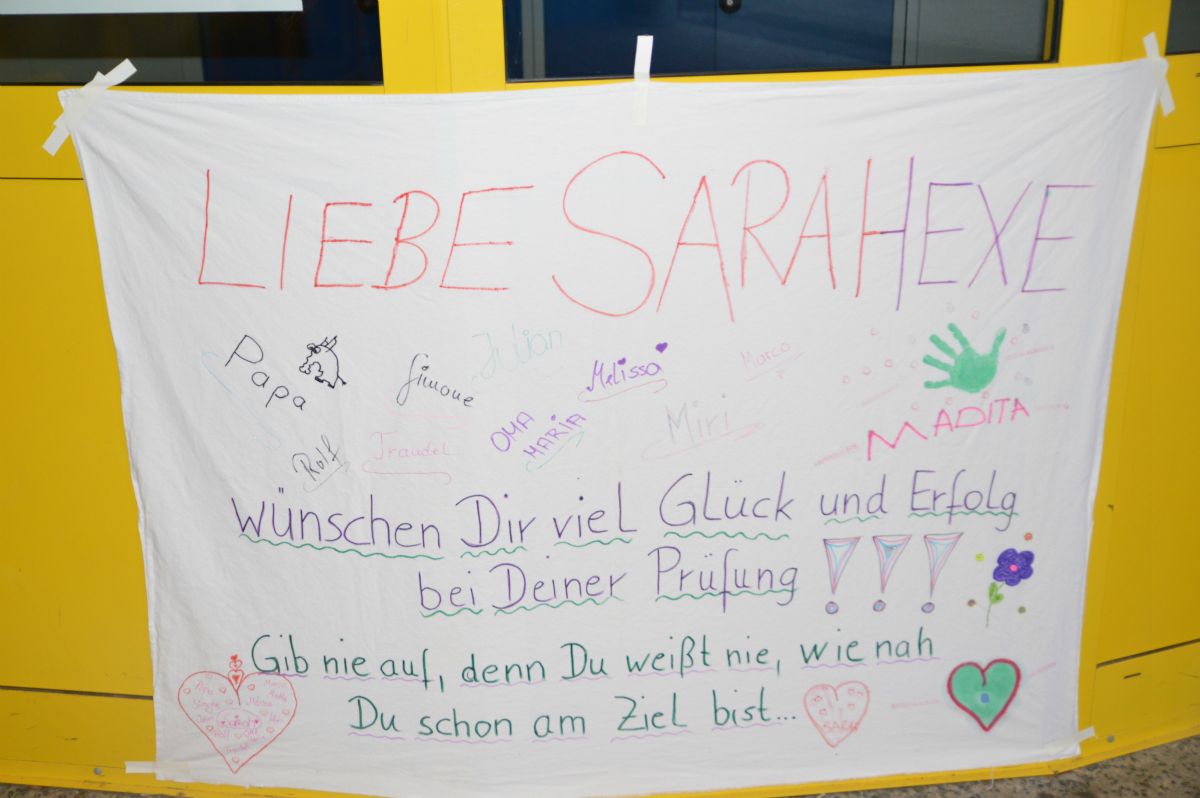 LIEBE SARAHEXE
Papa Simone Julian Melissa Marco
Rolf Traudel OMA MARIA Miri MADITA
wünschen Dir viel Glück und Erfolg
bei Deiner Prüfung !!!
Gib nie auf, denn Du weißt nie, wie nah
Du schon am Ziel bist...
SARAH